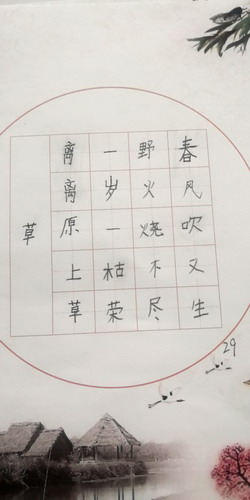 草
离离原上草
一岁一枯荣
野火烧不尽
春风吹又生
29